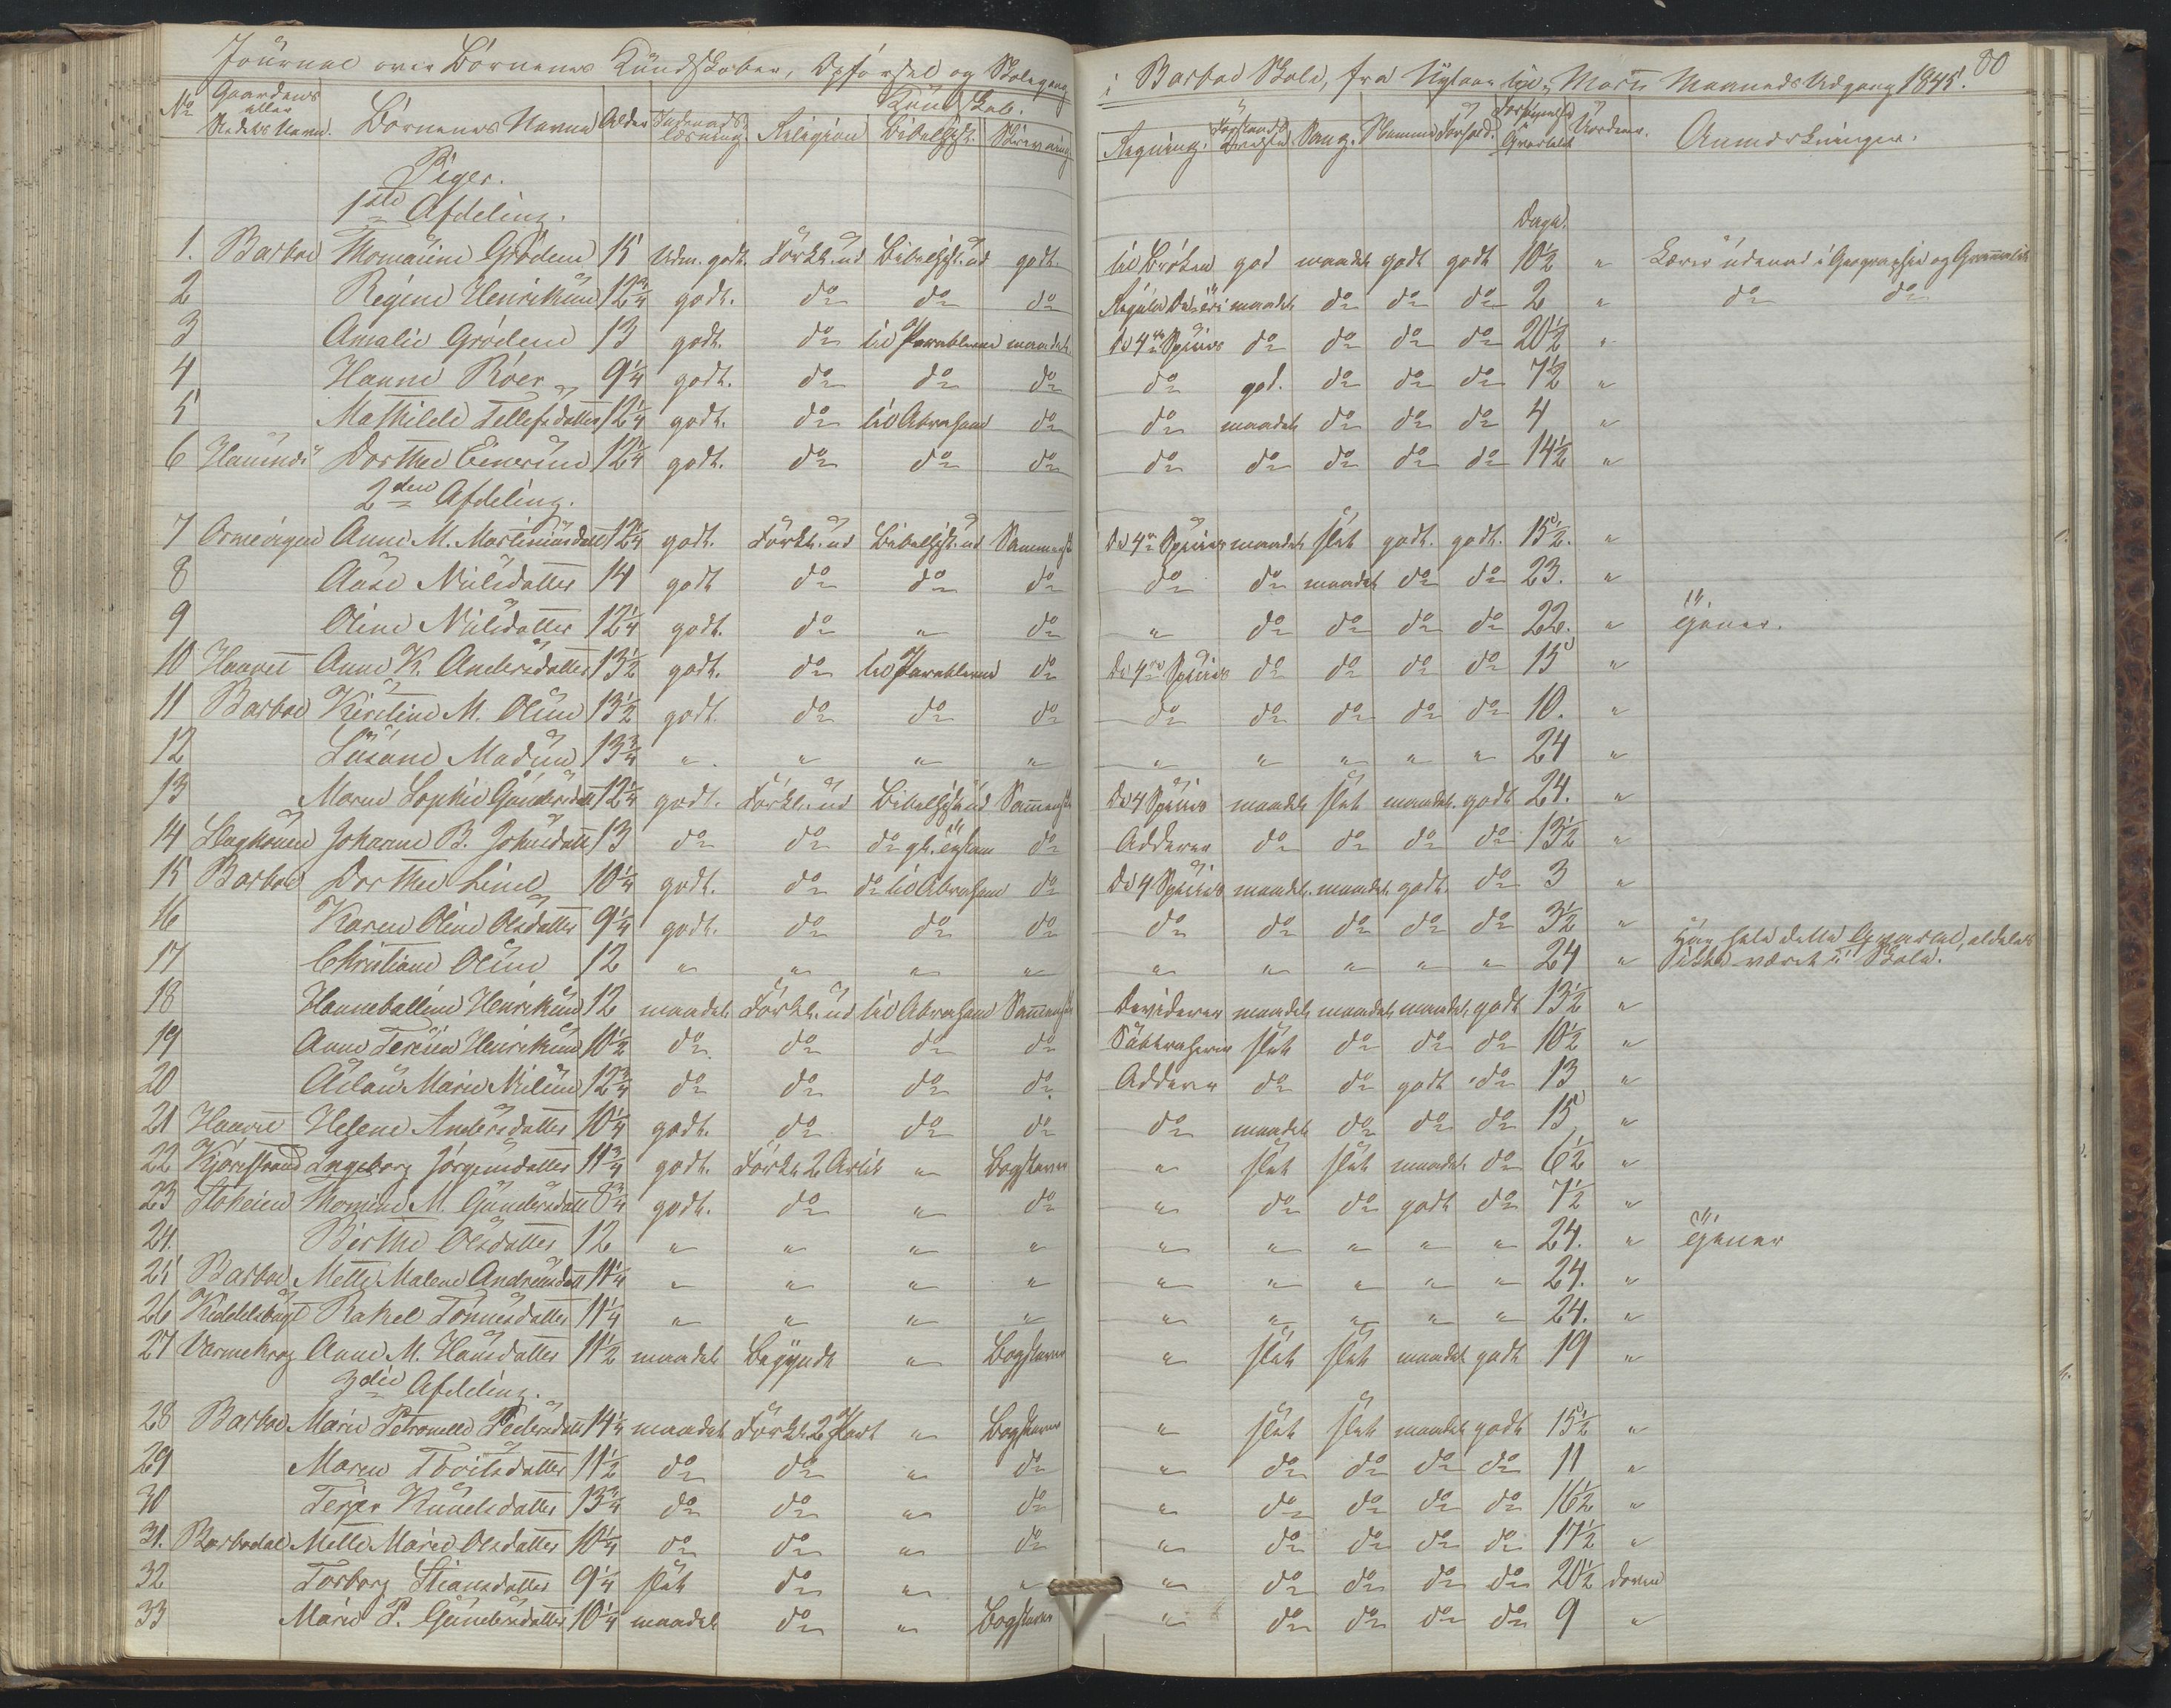 Journal over Börnenes Kundskaber, Opförsel og Skolegang i Barboe Skole, fra Nytaar til Marts Maaneds Udgang 1845. 80
No Gaardens eller Stedets Navn. Börnenes Navne Alder Indenads-læsning. Religion Kundskab. Bibelhist. Skrivning Regning. Forstands Sang. Forsömmelse Qvartalet Anmærkninger.
Piger.
1ste Afdeling.
Dage.
1. Barboe Thomasine Grödem 15 Udm. godt. Forkl. ud Bibelhist. ud godt. til Bröken god maadel. godt godt 10½ " Lærer udenad i Geographie og Gramatik
2 Regine Henriksen 12¾ godt. do do do Regula Detri maadel. do do do 2 " do do
3 Amalie Grödem 13 godt. do til Parablerne maadel. De 4re Species do do do do 20½ "
4 Hanne Röer 9¼ godt. do do do do god. do do do 7½ "
5 Mathilde Tellefsdatter 12¼ godt. do til Abraham do do maadel. do do do 4 "
6 Dorthe Evensen 12¼ godt. do do do do do do do do 14½ "
2den Afdeling.
7 Ormevigen Anne M. Martinusdatt 12¼ godt. Forkl. ud Bibelhist. ud Sammensk De 4re Species maadel. slet godt. godt. 15½. "
8 Aase Nielsdatter 14 godt do do do do do maadel. do do 23. "
9 Oline Nielsdatter 12¼ godt. do " do " do do do do 22. " tjener.
10 Haavet Anne K. Andersdatter 13½ godt. do til Parablerne do De 4re Species do do do do 15 "
11 Barboe Kirstine M. Olsen 13½ godt. do do do do do do do do 10. "
12 Susane Madsen 13¾ " " " " " " " " " 24 "
13 Maren Sophie Gundersdatt 12¼ godt. Forkl. ud Bibelhist. ud Sammensk De 4 Species maadel. slet maadel. godt 24. "
14 Johanne B. Johnsdatt 13 do do do do Adderer do do do do 13½ "
15 Barboe Dorthe Lind 10¼ godt. do do til Abraham do De 4 Species maadel. maadel. godt. do 3 "
16 Karen Oline Olsdatter 9¼ godt. do do do do do do do do 3½ "
17 Christiane Olsen 12 " " " " " " " " " 24 " Har hele dette Qvartal, aldeles ikke været i Skole.
18 Henriksen 12 maadel. Forkl. ud til Abraham Sammensk Deviderer maadel. maadel. maadel. godt 13½ "
19 Anne Teresia Henriksen 10½ do do do do Subtraherer slet do do do 10½ "
20 Marie Nielsen 12¾ do do do do Adderer do do godt do 13 "
21 Haavet Helene Andersdatter 10¼ godt. do do do do maadel. do do do 15 "
22 Ingeborg Jörgensdatter 11¾ godt. Forkl. 2 Artik " Bogstaver " slet slet maadel. do 6½ "
23 Stoheien Thomine M. Gundersdatt 8¾ godt. do " do " do do godt do 7½ "
24. Birthe Olsdatter 12 " " " " " " " " " 24. " tjener
25 Barboe Mette Malene Andreasdatt 11¼ " " " " " " " " " 24. "
26 Kiddelsbugt Rakel Tönnesdatter 11¼ " " " " " " " " " 24. "
27 Varmekrog Anne M. Hansdatter 11½ maadel. Begyndt " Bogstaver " slet slet maadel. godt 19 "
3die Afdeling.
28 Barboe Marie Petronelle Pedersdatt 14¼ maadel. Forkl. 2 Part " Bogstaver " slet slet maadel. godt 15½ "
29 Maren Torilsdatter 11½ do do " do " do do do do 11 "
30 Terjer Knudsdatter 13¾ do do " do " do do do do 16½ "
31. Barbodal Mette Marie Olsdatter 10¼ do do " do " do do do do 17½ "
32 Torborg Stiansdatter 9¼ slet do " " " do do do do 20½ doven
33 Marie P. Gundersdatter 10¼ maadel. do " Bogstaver " do do do do 9 "